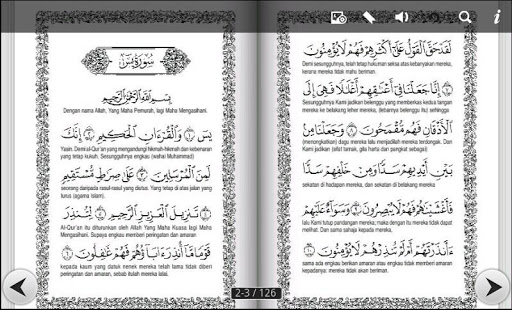 سُورَةُ يسٓ
بِسْمِ اللَّهِ الرَّحْمَٰنِ الرَّحِيمِ
Dengan nama Allah, Yang Maha Pemurah, lagi Maha Mengasihani.
يسٓ ﴿١﴾ وَالْقُرْءَانِ الْحَكِيمِ ﴿٢﴾ إِنَّكَ
Yasin. Demi al-Qur'an yang mengandungi hikmah-hikmah dan kebenaran
yang tetap kukuh. Sesungguhnya engkau (wahai Muhammad)
لَمِنَ الْمُرْسَلِينَ ﴿٣﴾ عَلَىٰ صِرَاطٍ مُّسْتَقِيمٍ
seorang daripada rasul-rasul yang diutus. Yang tetap di atas jalan yang lurus
(agama Islam).
﴿٤﴾ تَنزِيلَ الْعَزِيزِ الرَّحِيمِ ﴿٥﴾ لِتُنذِرَ
Al-Qur'an itu diturunkan oleh Allah Yang Maha Kuasa lagi Maha
Mengasihani. Supaya engkau memberi peringatan dan amaran
قَوْمًا مَّا أُنذِرَ ءَابَاؤُهُمْ فَهُمْ غَافِلُونَ ﴿٦﴾
kepada kaum yang datuk nenek mereka telah lama tidak diberi
peringatan dan amaran, sebab itulah mereka lalai.
لَقَدْ حَقَّ الْقَوْلُ عَلَىٰ أَكْثَرِهِمْ فَهُمْ لَا يُؤْمِنُونَ
Demi sesungguhnya, telah tetap hukuman seksa atas kebanyakan mereka,
kerana mereka tidak mahu beriman.
﴿٧﴾ إِنَّا جَعَلْنَا فِي أَعْنَاقِهِمْ أَغْلَالًا فَهِيَ إِلَى
Sesungguhnya Kami jadikan belenggu yang memberkas kedua tangan
mereka ke batang leher mereka; lebarnya belenggu itu sampai
الْأَذْقَانِ فَهُم مُّقْمَحُونَ ﴿٨﴾ وَجَعَلْنَا مِن
(menongkatkan) dagu mereka lalu menjadilah mereka terdongak. Dan
Kami jadikan (sifat tamak, gila harta dan pangkat sebagai)
بَيْنِ أَيْدِيهِمْ سَدًّا وَمِنْ خَلْفِهِمْ سَدًّا
sekatan di hadapan mereka, dan sekatan di belakang mereka.
فَأَغْشَيْنَاهُمْ فَهُمْ لَا يُبْصِرُونَ ﴿٩﴾ وَسَوَاءٌ عَلَيْهِمْ
lalu Kami tutup pandangan mereka; maka dengan itu, mereka tidak
dapat melihat. Dan sama sahaja kepada mereka,
ءَأَنذَرْتَهُمْ أَمْ لَمْ تُنذِرْهُمْ لَا يُؤْمِنُونَ ﴿١٠﴾
sama ada engkau beri amaran atau engkau tidak memberi amaran
kepadanya: mereka tidak akan beriman.
2-3 / 126